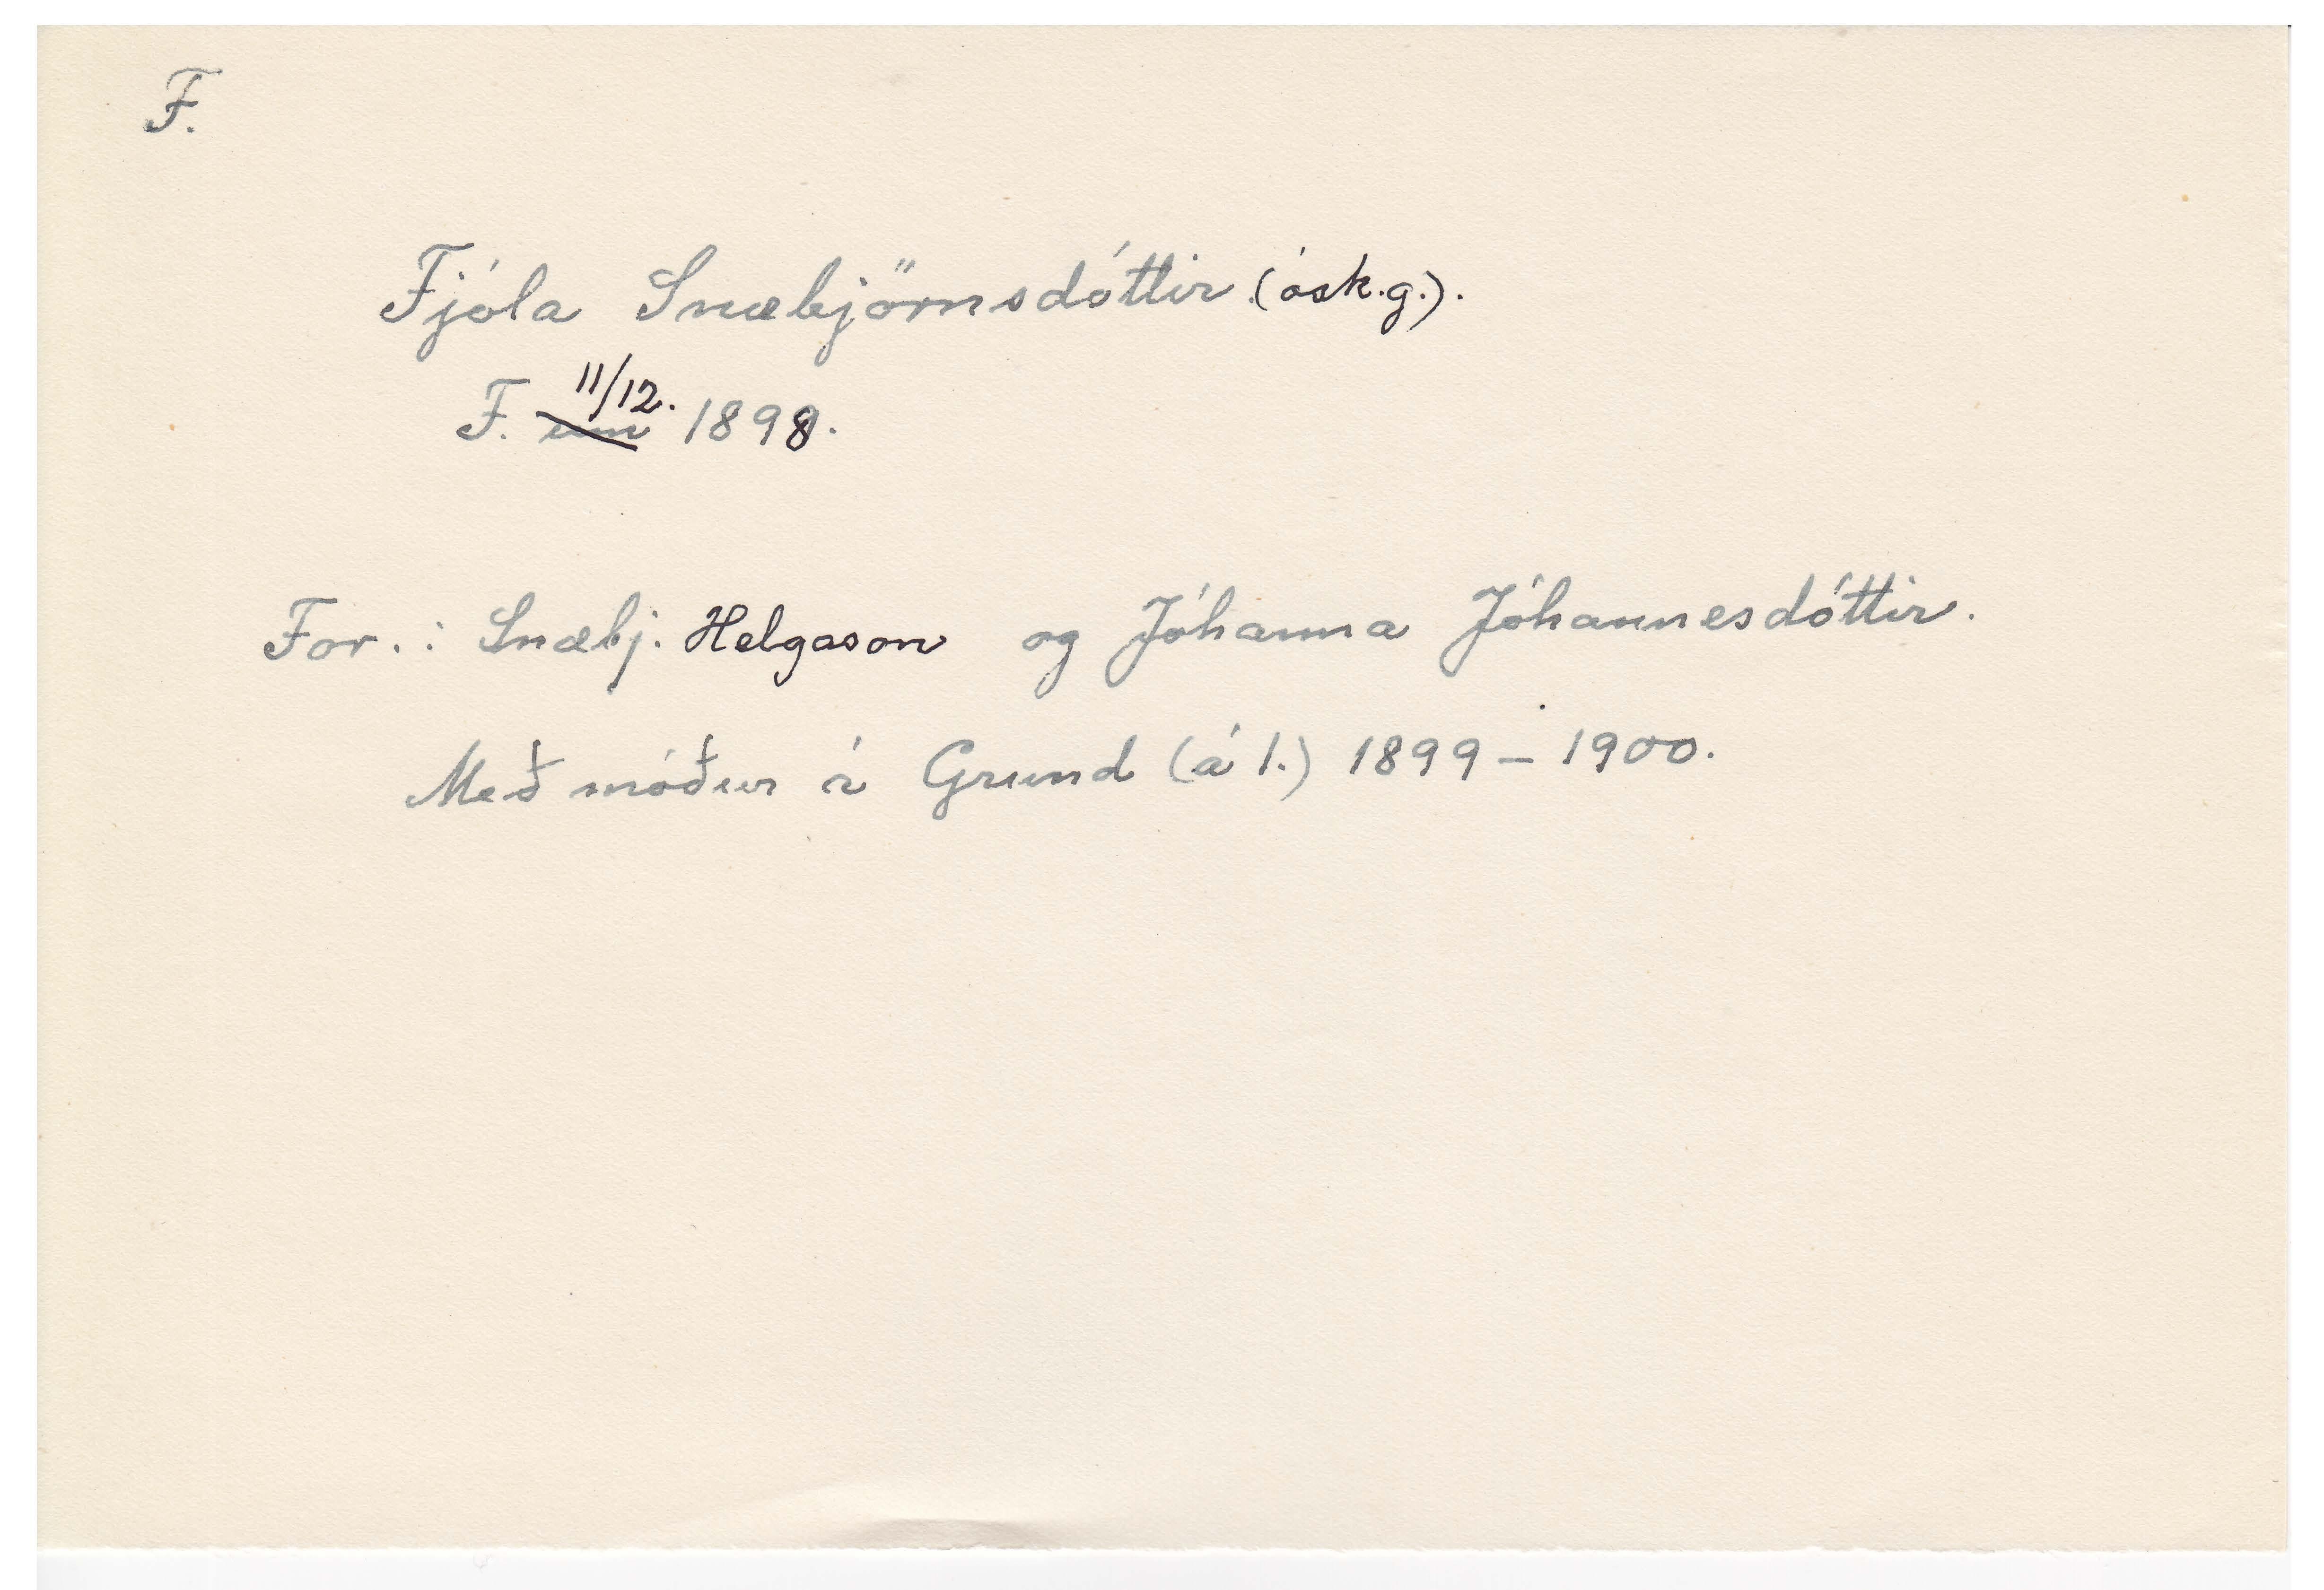 F.
Fjóla Snæbjörnsdóttir (ósk.g.).
F. um 11/12. 1898.
For.: Snæbj. Helgason og Jóhanna Jóhannesdóttir.
Með móður í Grund (á l.) 1899 – 1900.